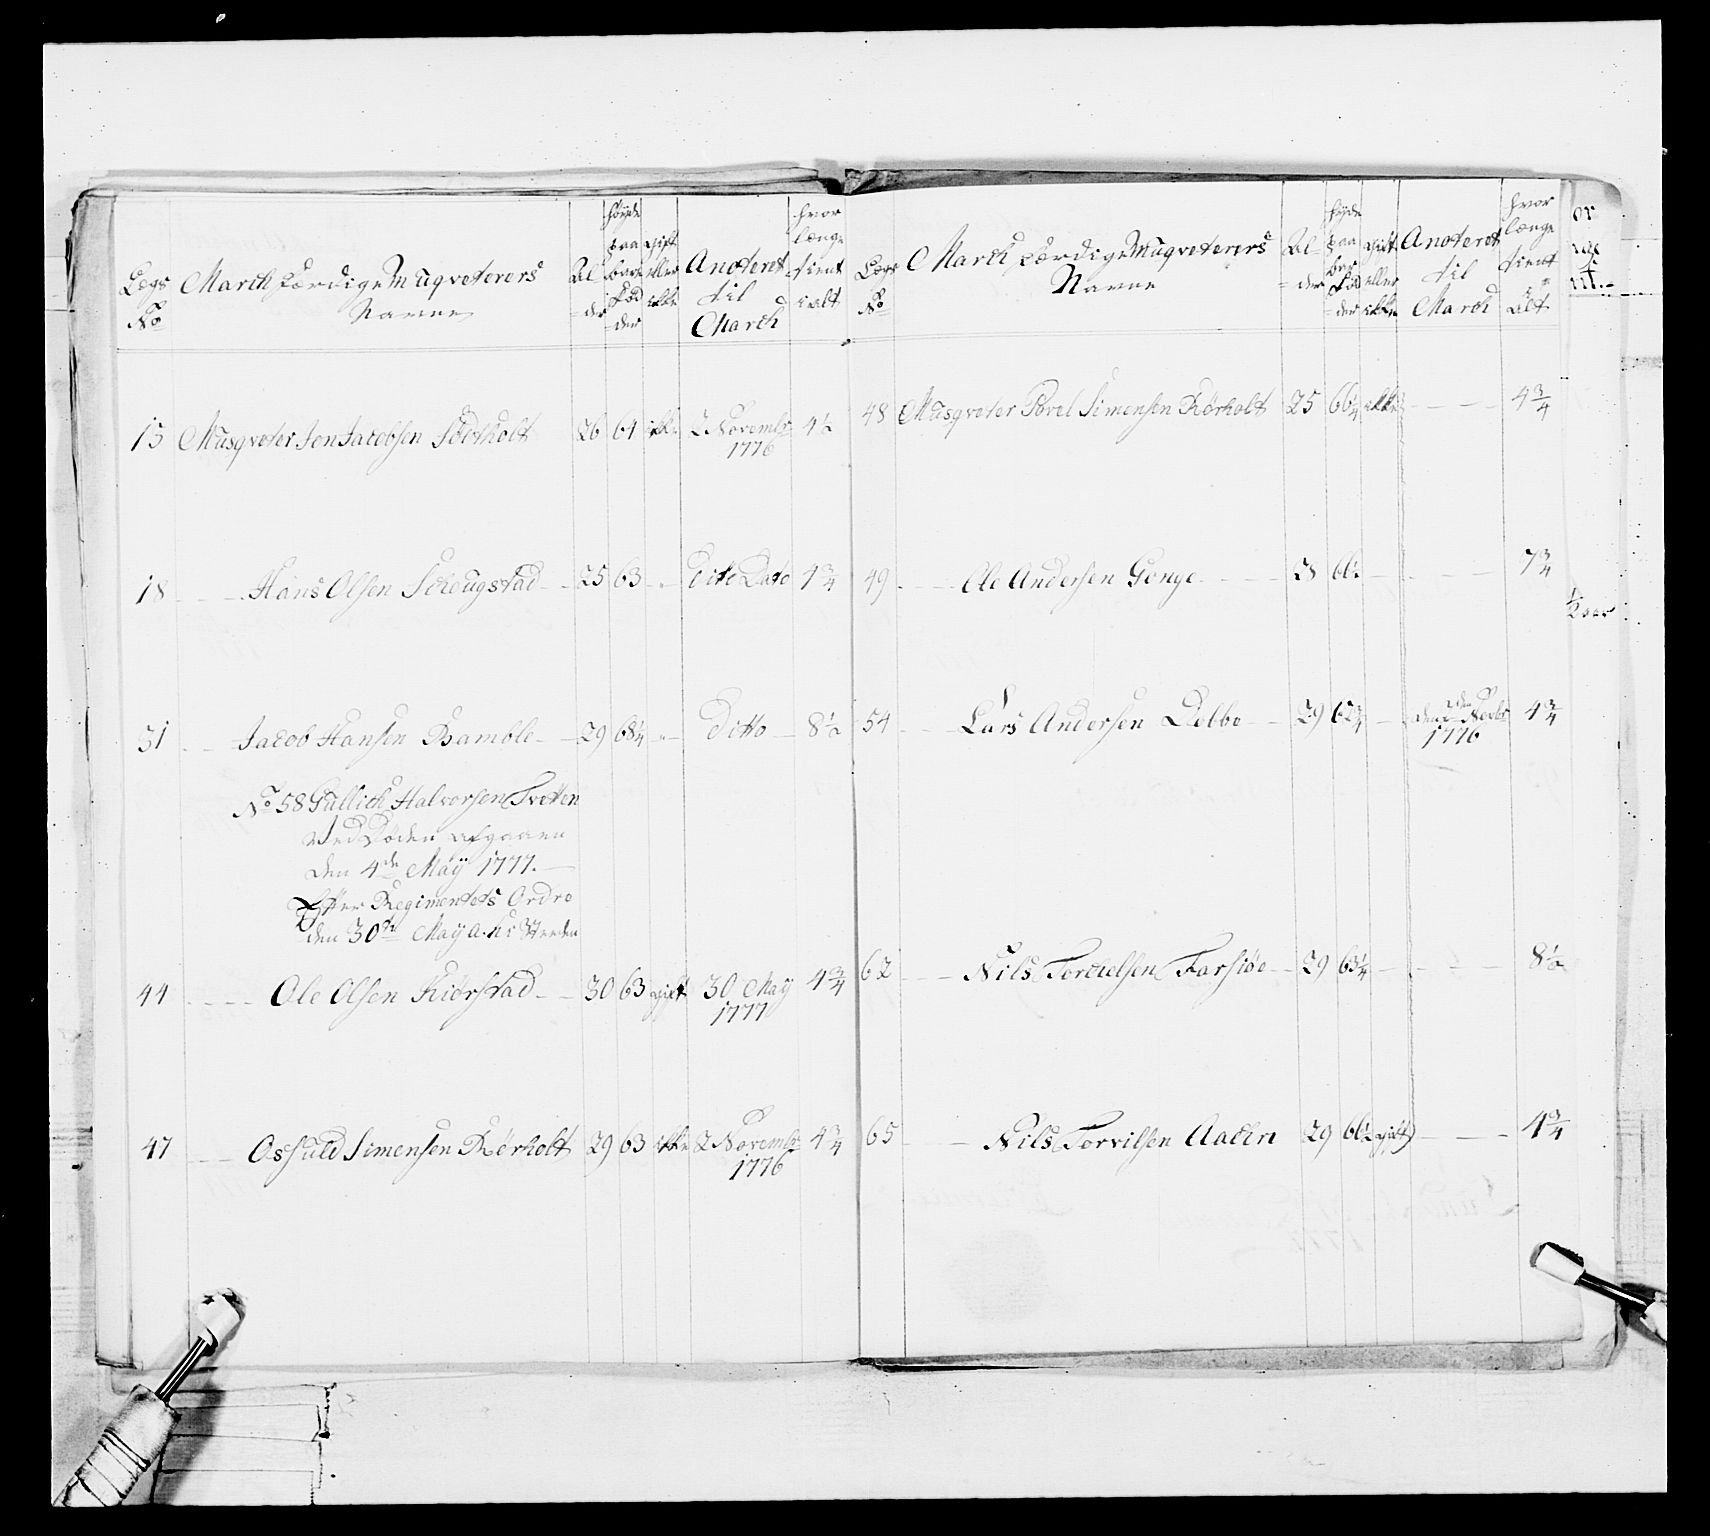 Lægs No
March Færdige Musqveterers Navne
Al-der
høyde paa bare Fød-der
gift eller ikke
Anoteret til March
hvor længe tient i alt
15 Musqveter Jon Jacobsen 26 64 ikke 2 Novembr 1776 4½
18 Hans Olsen 25 63 Dito Dato 4¾
31 Jacob Hansen Bamble 29 68¼ Ditto 8½
No 58 Gullich Halvorsen Tvetten
Ved Døden afgaaen
den 4de May 1777.
Efter Regimentets Ordre
den 30te May a. c.
44 Ole Olsen Kiørstad 30 63 gift 30 May 1777 4¾
47 Osfuld Simensen Rørholt 29 63 ikke 2 Novembr 1776 4¾
Lægs No
March Færdige Musqveterers Navne
Al-der
høyde paa bar Fød-der
gift eller ikke
Anoteret til March
hvor længe tient i alt
48 Musqveter Povel Simensen Rørholt 25 66¼ ikke 4¾
49 Ole Andersen Gonge 28 7¾
54 Lars Andersen Dobbe 29 62¾ den 2den Novbr 1776 4¾
62 Nils Torchelsen Farsiøe 29 63¼ 8½
65 Nils Torvilsen 29 66½ gift 4¾